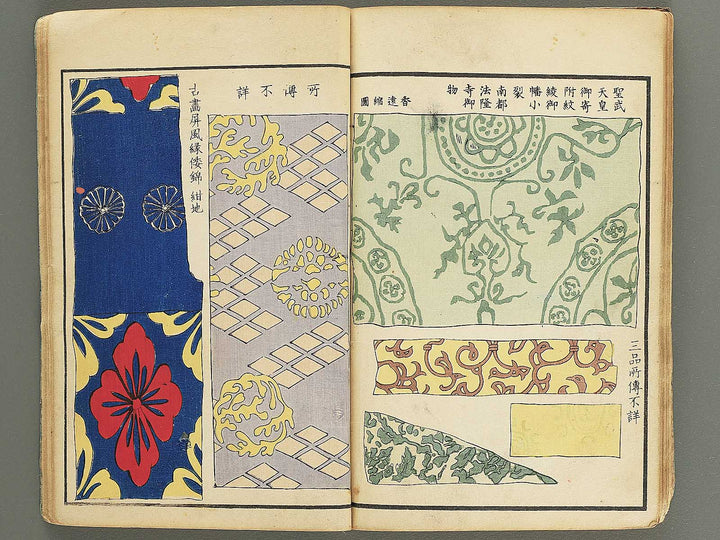 聖武
天皇
御寄
附紋
綾御
幡小
裂
南都
法隆
寺御
物
香遠縮圖
三品所傳不詳
所傳不詳
古畵屏風縁倭錦 紺地